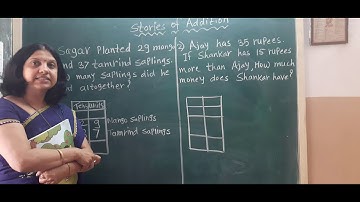 Stories of Addition
Sagar planted 29 mango
nd 37 tamrind saplings.
many saplings did he
altogether?
Tens Units
2 9 Mango saplings
7 Tamrind saplings
2) Ajay has 35 rupees.
If Shankar has 15 rupees
more than Ajay, How much
money does Shankar have?